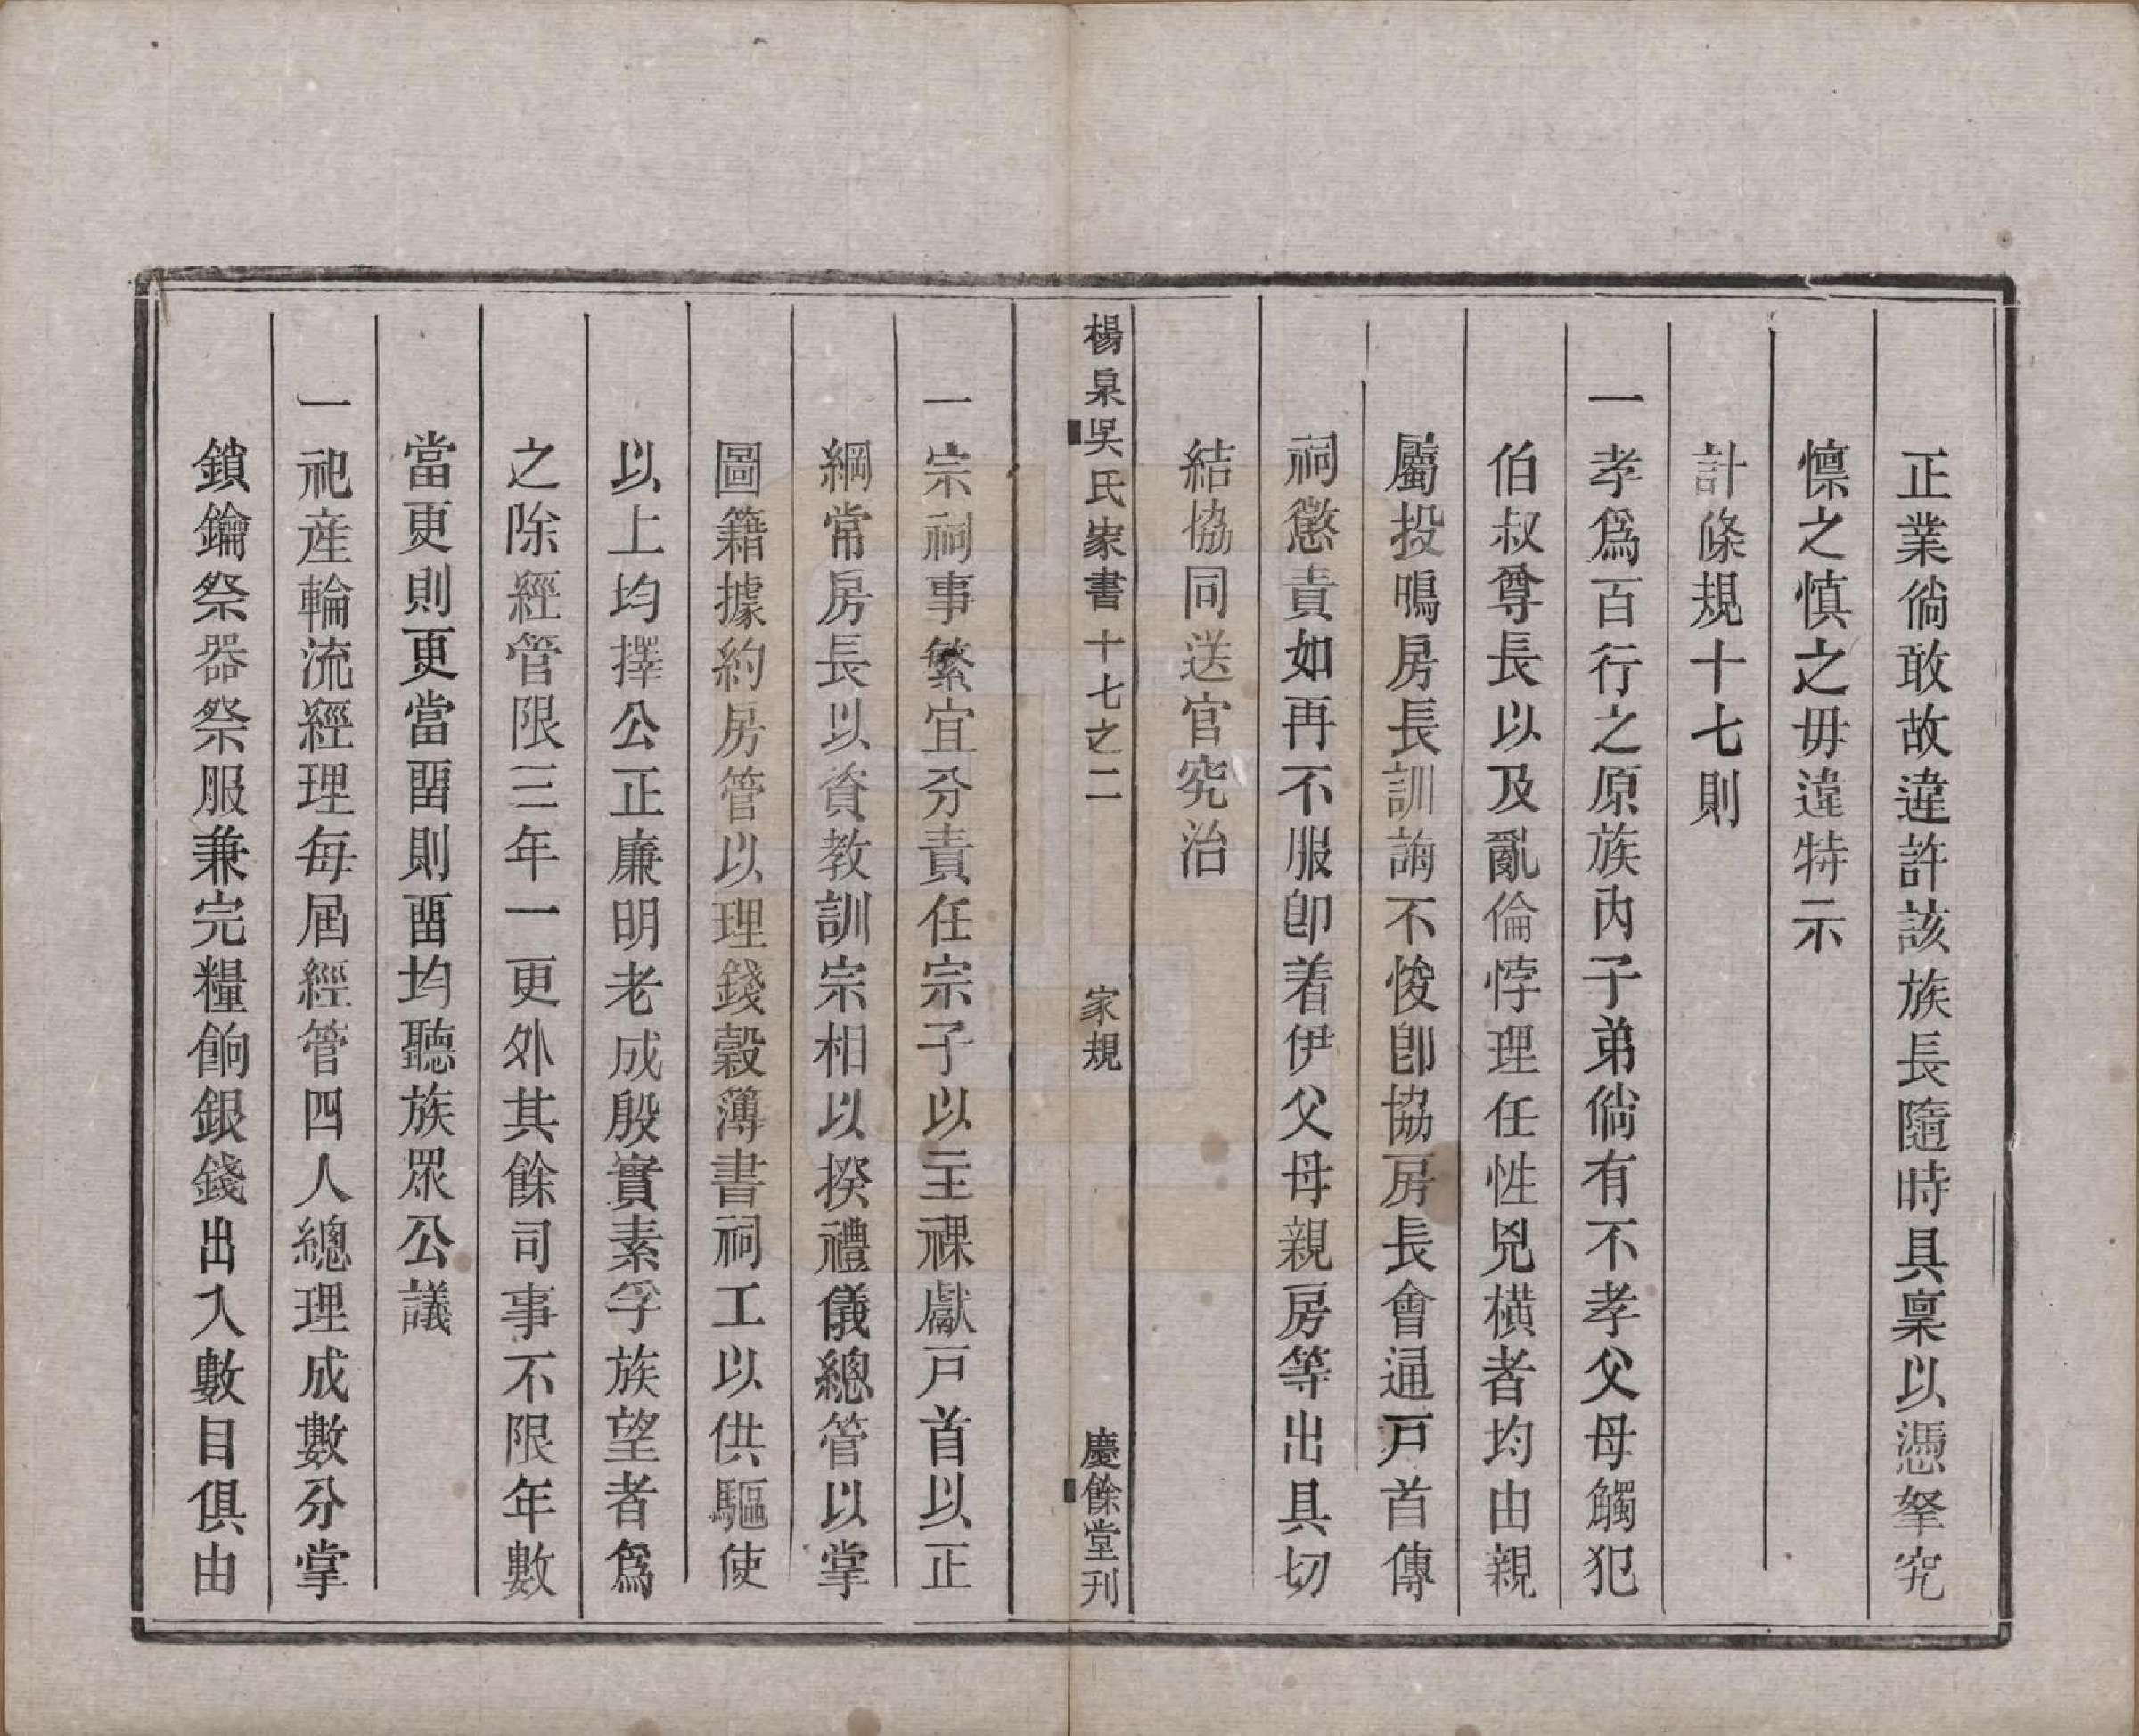 正業倘敢故違許該族長隨時具稟以憑拏究
懍之慎之毋違特示
計條規十七則
一孝爲百行之原族內子弟倘有不孝父母觸犯
伯叔尊長以及亂倫悖理任性兇橫者均由親
屬投鳴房長訓誨不悛卽協房長會通戸首傳
祠懲責如再不服卽着伊父母親房等出具切
結協同送官究治
楊泉吳氏家書十七之二
家規
慶餘堂刊
一宗祠事繁宜分責任宗子以主祼獻戸首以正
綱常房長以資教訓宗相以揆禮儀總管以掌
圖籍據約房管以理錢穀簿書祠工以供驅使
以上均擇公正廉明老成殷實素孚族望者爲
之除經管限三年一更外其餘司事不限年數
當更則更當畱則畱均聽族眾公議
一祀產輪流經理每屆經管四人總理成數分掌
鎖鑰祭器祭服兼完糧餉銀錢出入數目俱由